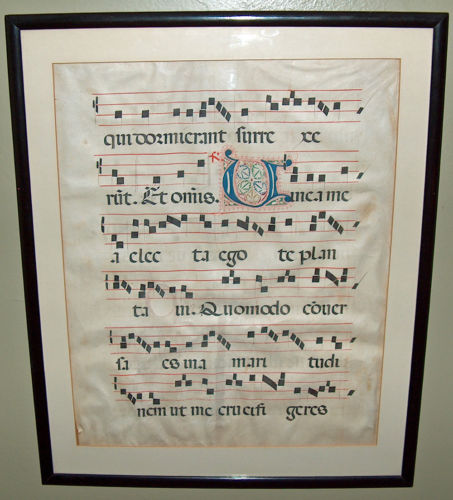 qui dormierant surre xe
rūt. Et om̄is. ℟ Uinea me
a elec ta ego te plan
ta ui. Quomodo cōuer
sa es in a mari tudi
nem ut me cruci fi geres